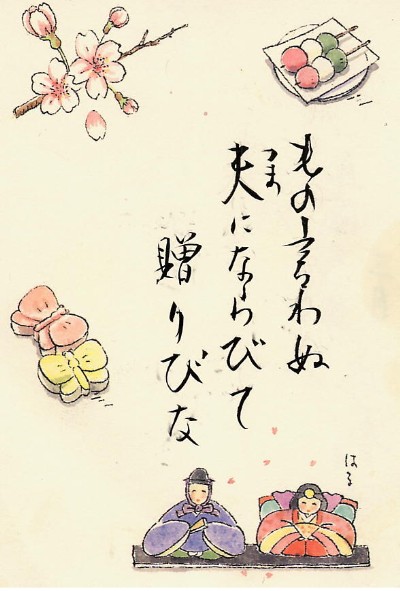 もの言わぬ
つま
夫にならびて
贈りびな
はる